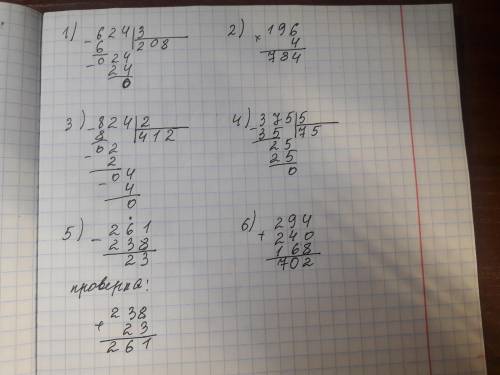 1) -624|3
6 |208
-024
24
0
2) ×196
4
784
3) -824|2
8 |412
-02
2
-04
4
0
4) -375|5
35 |75
25
25
0
5) -261
238
23
проверка:
+238
23
261
6) +294
240
168
702